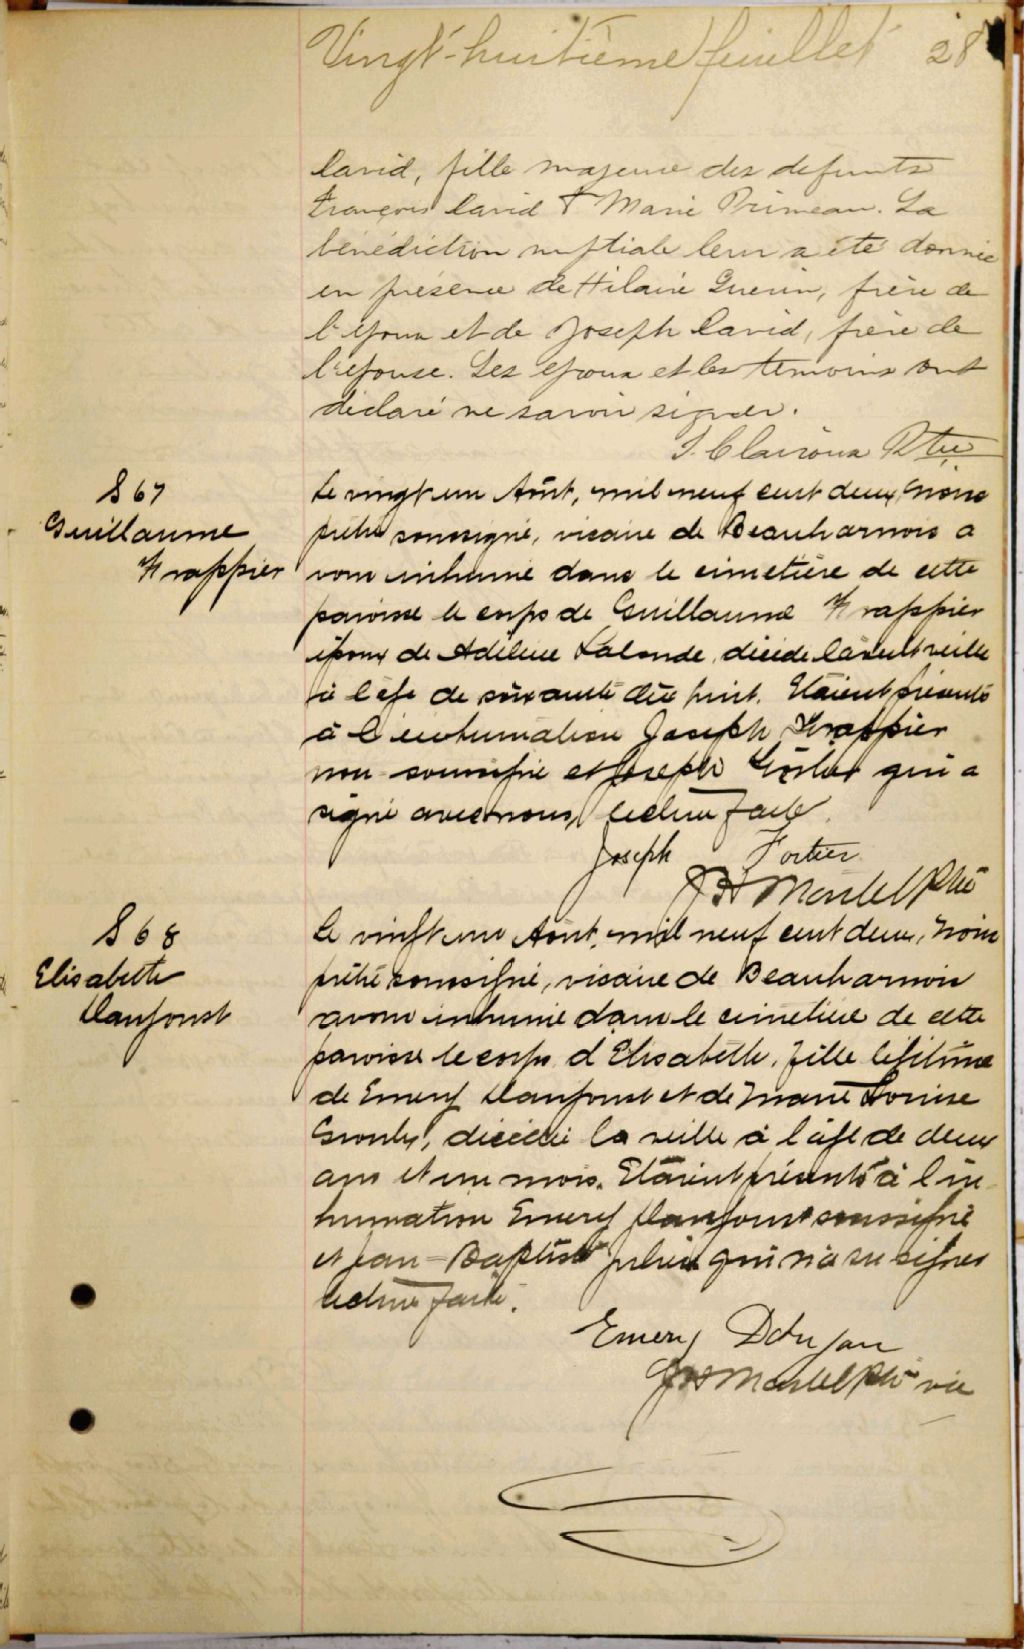 Vingt-huitième feuillet 28
David, fille majeure des defunts
François David & Marie Primeau. La
bénédiction nuptiale leur a été donnée
en présence de Hilaire Guerin, frère de
l'epoux et de Joseph David, frère de
l'epouse. Les epoux et les temoins ont
déclaré ne savoir signer.
J. Clairoux Ptre
S 67
Guillaume
Frappier
Le vingt un Août, mil neuf cent deux, Nous
prêtre soussigné, vicaire de Beauharnois a
vons inhumé dans le cimetière de cette
paroisse le corps de Guillaume Frappier
époux de Adéline Lalonde, décédé l'avant veille
à l'age de soixante dix huit. Etaient présents
à l'inhumation Joseph Frappier
non soussigné et Joseph Fortier qui a
signé avec nous, lecture faite.
Joseph Fortier
Ptre
S 68
Elisabeth
Le vingt un Août, mil neuf cent deux, Nous
prêtre soussigné, vicaire de Beauharnois
avons inhumé dans le cimetière de cette
paroisse le corps d'Elisabeth, fille légitime
de Emery et de Marie Louise
décédée la veille à l'age de deux
ans et un mois. Etaient présents à l'in-
humation Emery soussigné
et Jean-Baptiste qui n'a su signer
lecture faite.
Emery
Ptre vic